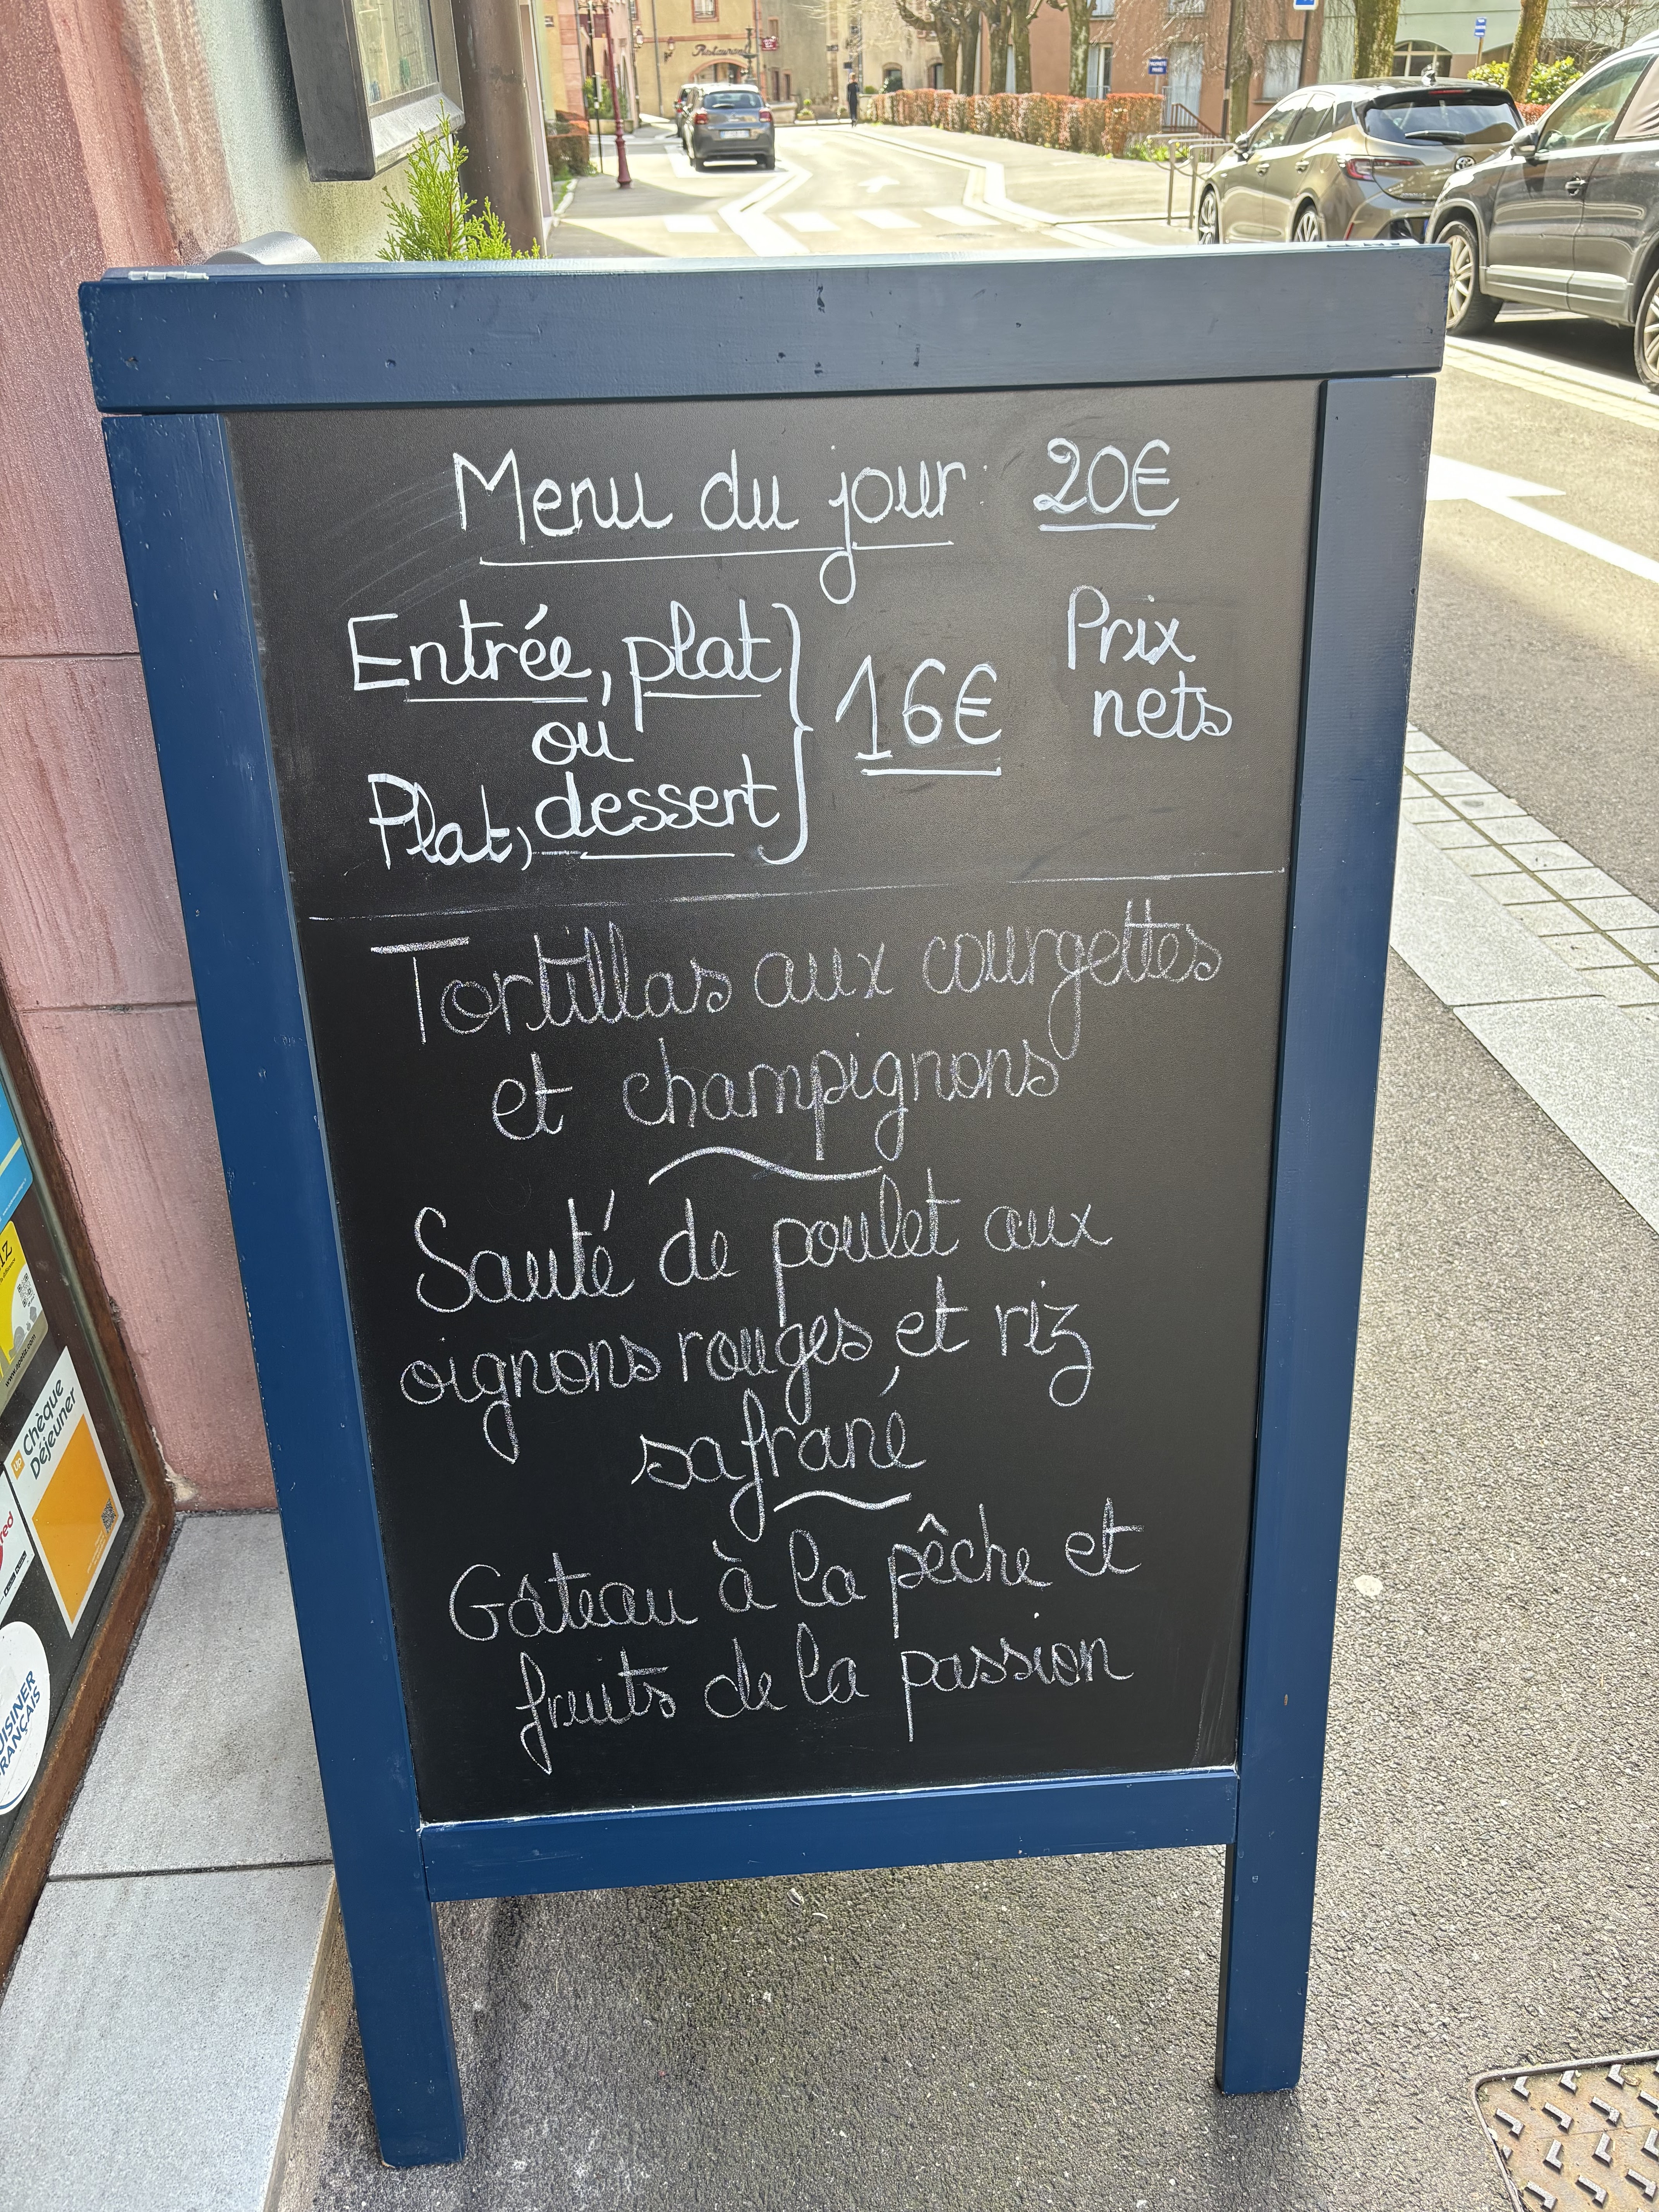 Restaurant
Menu du jour 20€
Entrée, plat
ou
Plat, dessert
16€
Prix
nets
Tortillas aux courgettes
et champignons
Sauté de poulet aux
oignons rouges et riz
safrané
Gâteau à la pêche et
fruits de la passion
up Chèque
Déjeuner